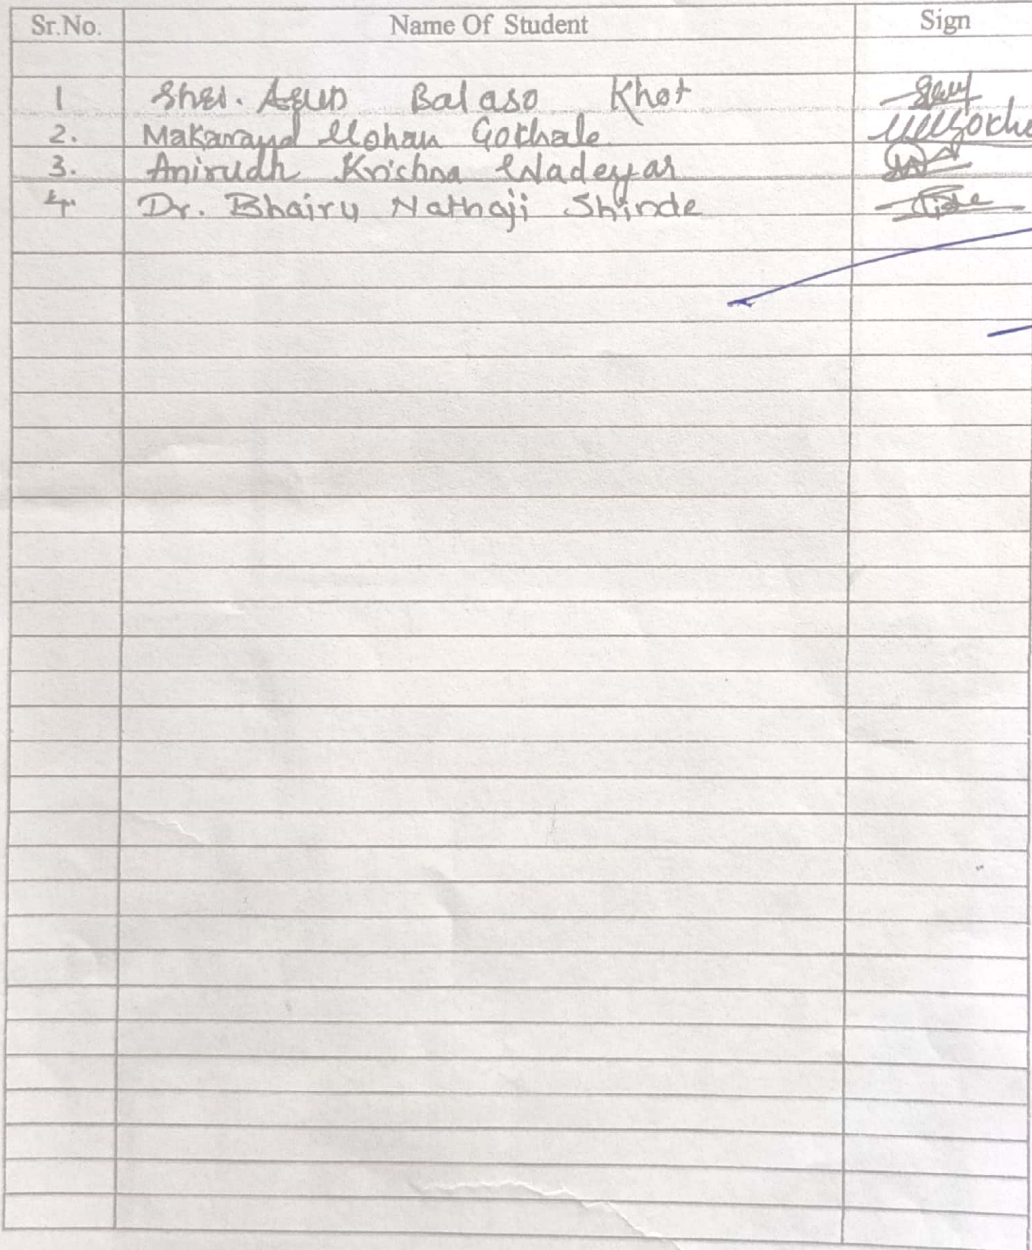 Sr.No. Name Of Student Sign
1 Shri. Arun Balaso Khot
2. Makarand Mohan Gokhale
3. Anirudh Krichna Wadeyar
4. Dr. Bhairu Nathaji Shinde